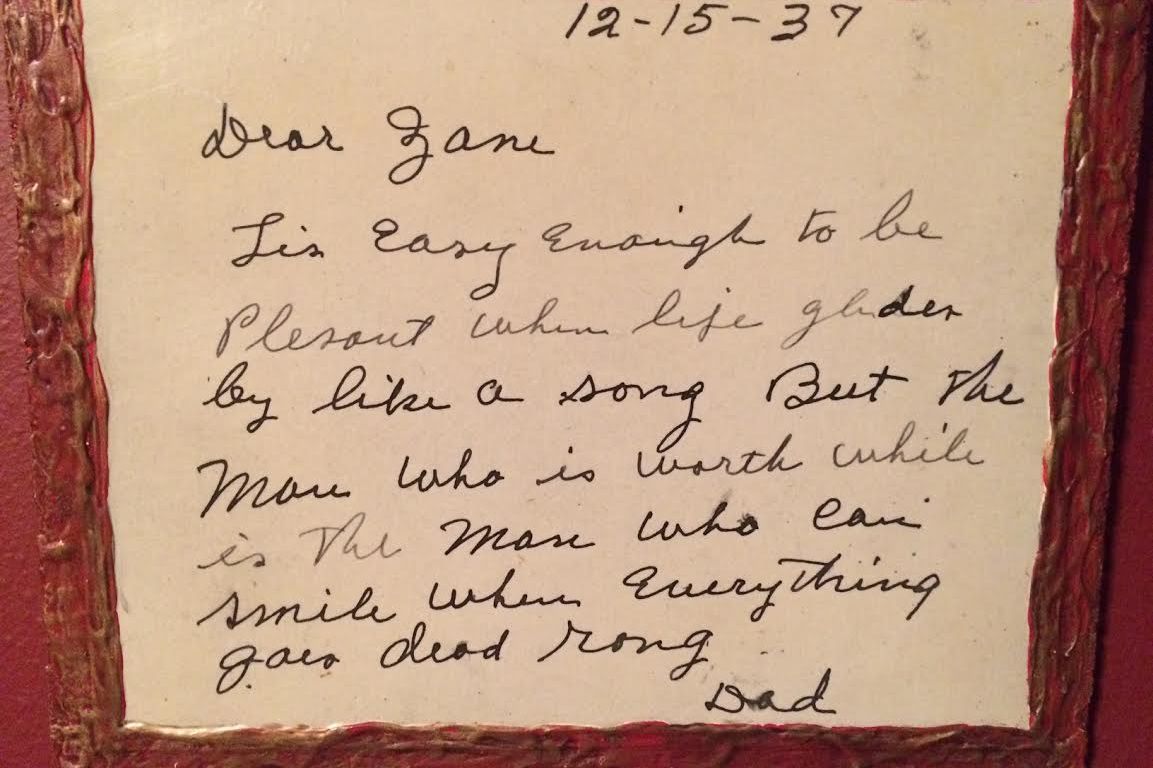 12-15-37
Dear Zane
Tis Easy Enough to be
Plesant when life glides
by like a song But The
Man who is worth while
is The Man who can
smile when Everything
goes dead rong
Dad